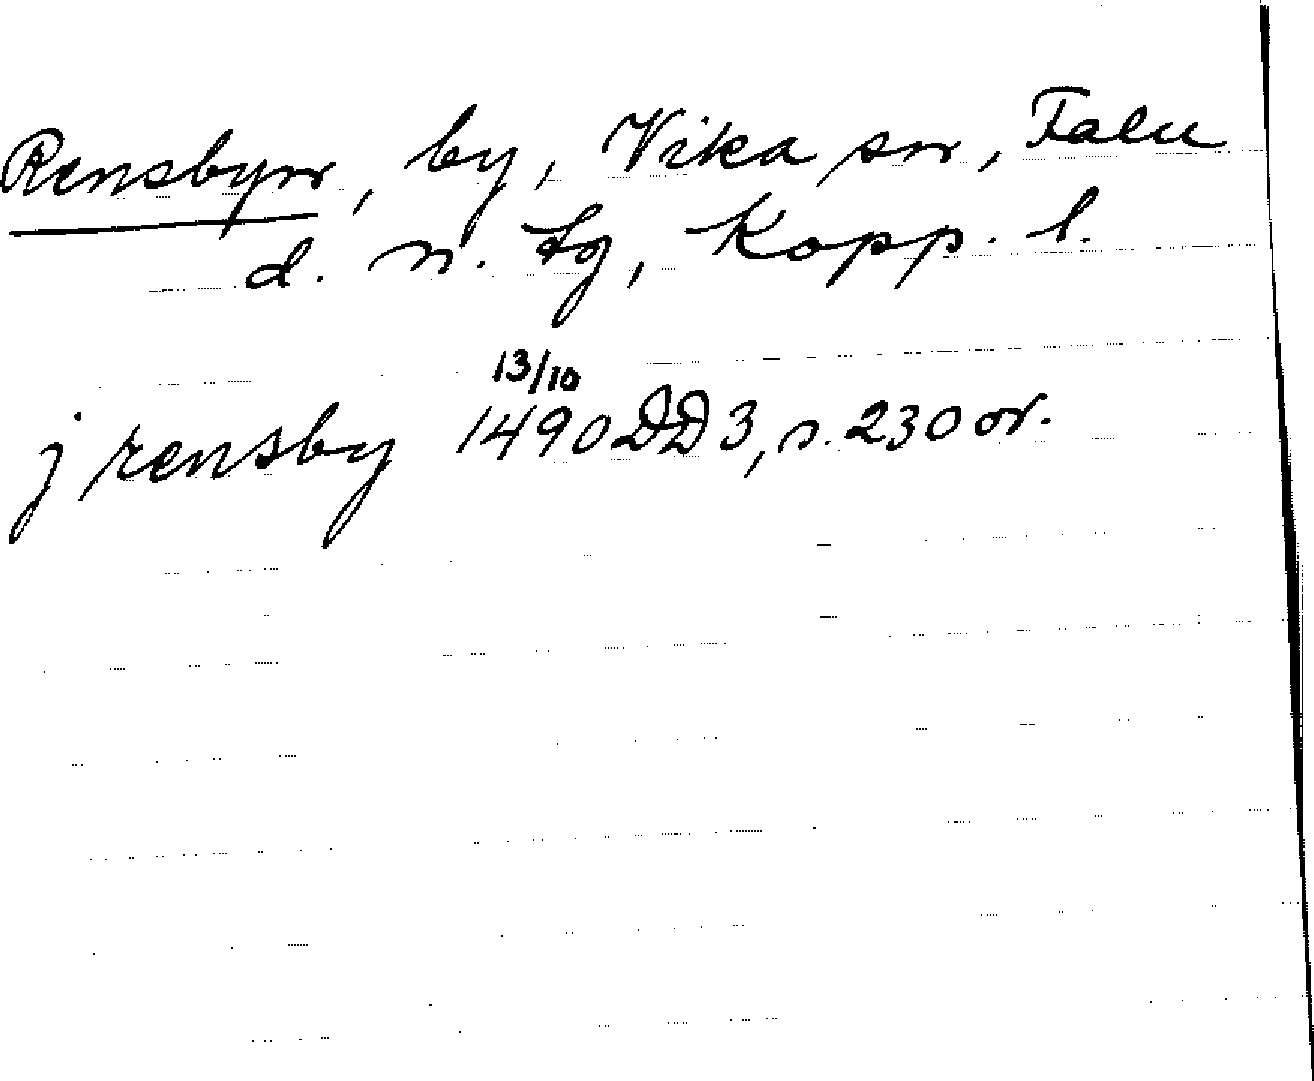 Rensbyn, by, Vika sn, Falu
d. n. tg, Kopp. l.
13/10
j rensby 1490 DD3, s. 230 or.